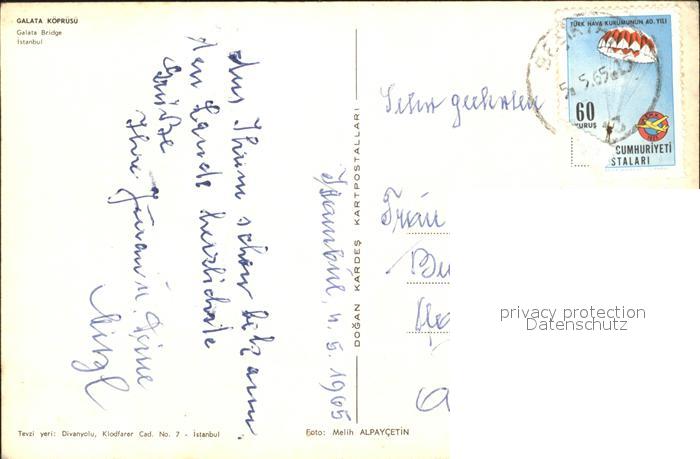 GALATA KÖPRÜSÜ
Galata Bridge
İstanbul
Aus Ihnen schon bekann
ten Lande herzlichste
Grüße
Ihre
Mitzl
Istanbul, 4. 5. 1965
DOĞAN KARDEŞ KARTPOSTALLARI
TÜRK HAVA KURUMUNUN 40. YILI
5. 5. 65
60
KURUŞ
CUMHURİYETİ
STALARI
Frau
privacy protection
Datenschutz
Tevzi yeri: Divanyolu, Klodfarer Cad. No. 7 - İstanbul
Foto: Melih ALPAYÇETİN